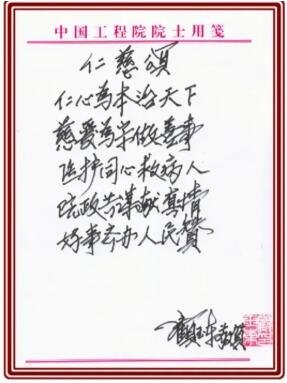 中国工程院院士用笺
仁慈頌
仁心為本治天下
慈愛為做善事
医护同心救病人
院政共谋献真情
好事办人民贊
顧玉东